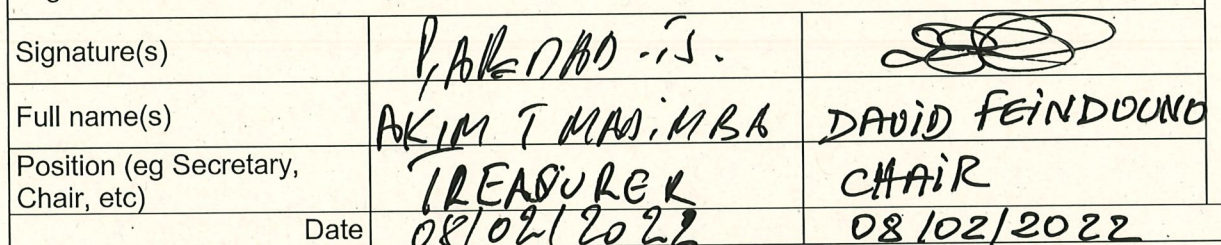 Signature(s)
Full name(s) AKIM T MADIMBA DAVID FEINDOUNO
Position (eg Secretary, Chair, etc) TREASURER CHAIR
Date 08/02/2022 08/02/2022